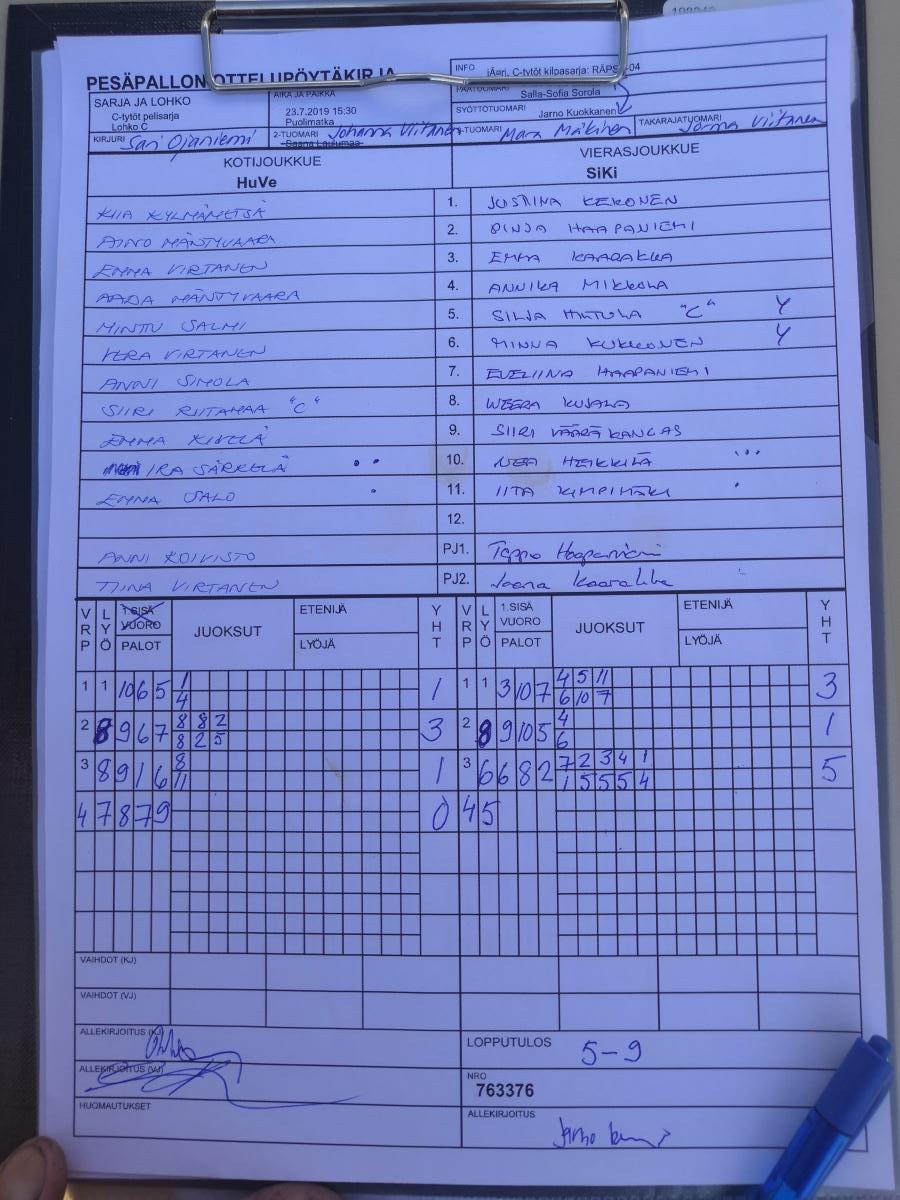 PESÄPALLON OTTELUPÖYTÄKIRJA
INFO
C-tytöt kilpasarja:
SARJA JA LOHKO
C-tytöt pelisarja
Lohko C
AIKA JA PAIKKA
23.7.2019 15:30
Puolimatka
PÄÄTUOMARI
Salla-Sofia Sorola
SYÖTTÖTUOMARI
Jarno Kuokkanen
KIRJURI Sari Ojaniemi
2-TUOMARI Johanna Viitanen
-TUOMARI Mara Mäkinen
TAKARAJATUOMARI Jorma Viitanen
KOTIJOUKKUE
HuVe
VIERASJOUKKUE
SiKi
KIIA KYLMÄMETSÄ 1. JUSTIINA KEKONEN
AINO MÄNTYVAARA 2. PINJA HAAPANIEMI
EMMA VIRTANEN 3. EMMA KAARAKKA
AADA MÄNTYVAARA 4. ANNIKA MIKKOLA
MINTTU SALMI 5. SILJA HUTULA "C" Y
VERA VIRTANEN 6. MINNA KUKKONEN Y
ANNI SIMOLA 7. EVELIINA HAAPANIEMI
SIIRI RIITAMAA "C" 8. WEERA KUJALA
EMMA KIVELÄ 9. SIIRI VÄÄRÄKANGAS
IRA SÄRKELÄ 10. NEA HEIKKILÄ
EMMA SALO 11. IITA KIMPIMÄKI
12.
ANNI KOIVISTO PJ1. Teppo Haapaniemi
TIINA VIRTANEN PJ2. Joona Kaarakka
VRP LYÖ 1.SISÄ VUORO PALOT JUOKSUT ETENIJÄ LYÖJÄ YHT VRP LYÖ 1.SISÄ VUORO PALOT JUOKSUT ETENIJÄ LYÖJÄ YHT
1 1 10 6 5 1 1 1 3 10 7 4 5 11 3
4 6 10 7
2 8 9 6 7 8 8 2 3 2 8 9 10 5 4 1
8 2 5 6
3 8 9 1 6 8 1 3 6 6 8 2 7 2 3 4 1 5
11 1 5 5 5 4
4 7 8 7 9 0 4 5
VAIHDOT (KJ)
VAIHDOT (VJ)
ALLEKIRJOITUS (KJ)
LOPPUTULOS 5-9
ALLEKIRJOITUS (VJ)
NRO
763376
HUOMAUTUKSET
ALLEKIRJOITUS